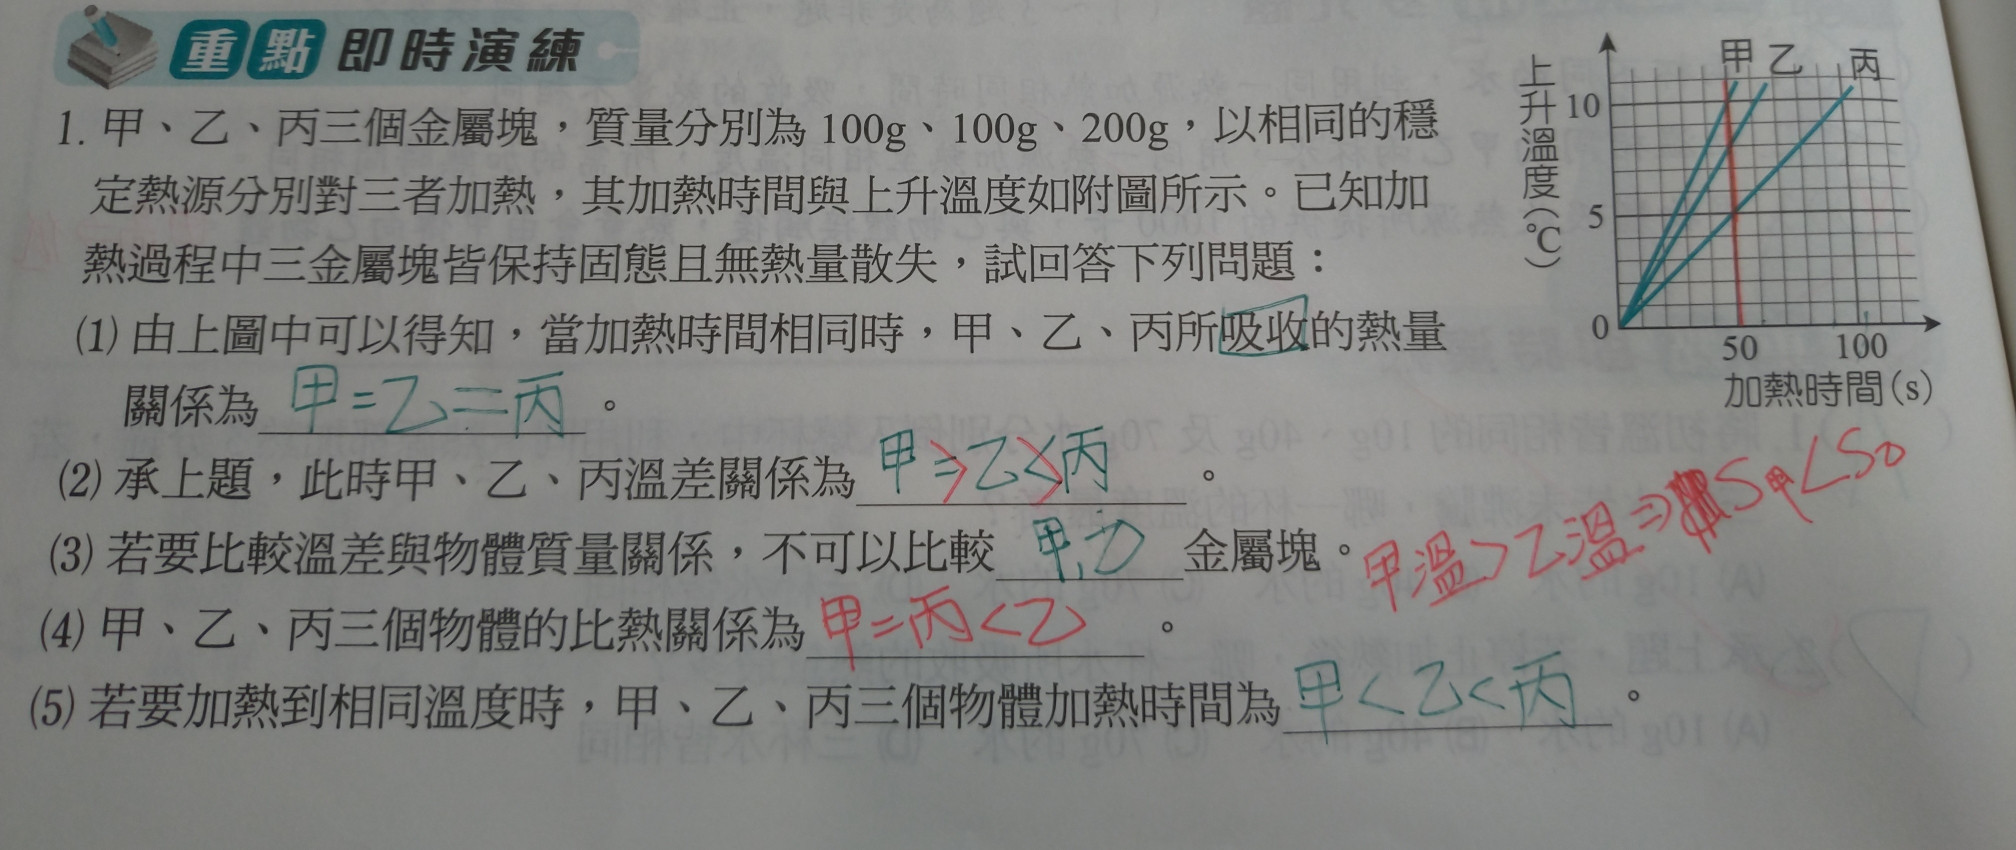 重點即時演練
1. 甲、乙、丙三個金屬塊，質量分別為 100g、100g、200g，以相同的穩
定熱源分別對三者加熱，其加熱時間與上升溫度如附圖所示。已知加
熱過程中三金屬塊皆保持固態且無熱量散失，試回答下列問題：
(1) 由上圖中可以得知，當加熱時間相同時，甲、乙、丙所吸收的熱量
關係為 甲=乙=丙 。
(2) 承上題，此時甲、乙、丙溫差關係為 甲>乙>丙 。
(3) 若要比較溫差與物體質量關係，不可以比較 甲、乙 金屬塊。
甲溫>乙溫⇒S甲<S乙
(4) 甲、乙、丙三個物體的比熱關係為 甲=丙<乙 。
(5) 若要加熱到相同溫度時，甲、乙、丙三個物體加熱時間為 甲<乙<丙 。
上升溫度(℃)
甲 乙 丙
10
5
0
50 100
加熱時間(s)